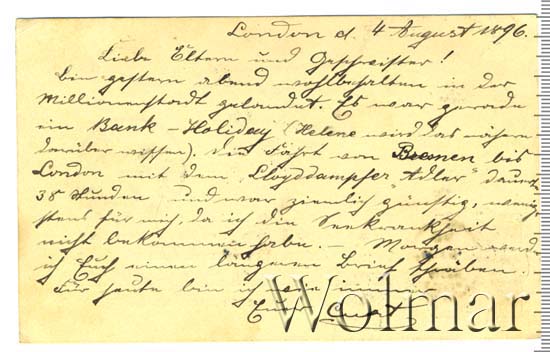 London d. 4 August 1896.
Liebe Eltern und Geschwister!
bin gestern abend wohlbehalten in der
Millionenstadt gelandet. Es war gerade
ein Bank-Holiday (Helene wird das nähere
darüber wissen). Die Fahrt von Bremen bis
London mit dem "Lloyddampfer Adler" dauerte
38 Stunden und war ziemlich günstig, wenig-
stens für mich, da ich die Seekrankheit
nicht bekommen habe. — Morgen werde
ich Euch einen längeren Brief schreiben.
Für heute bin ich wie immer
Euer
Wolmar